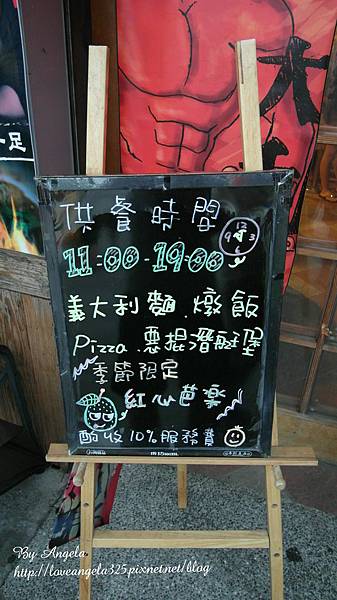 供餐時間
12
9 3
11:00-19:00
義大利麵.燉飯
Pizza.惡棍潛艇堡
季節限定
紅心芭樂
酌收10%服務費
大
一足
By Angela
http://loveangela325.pixnet.net/blog